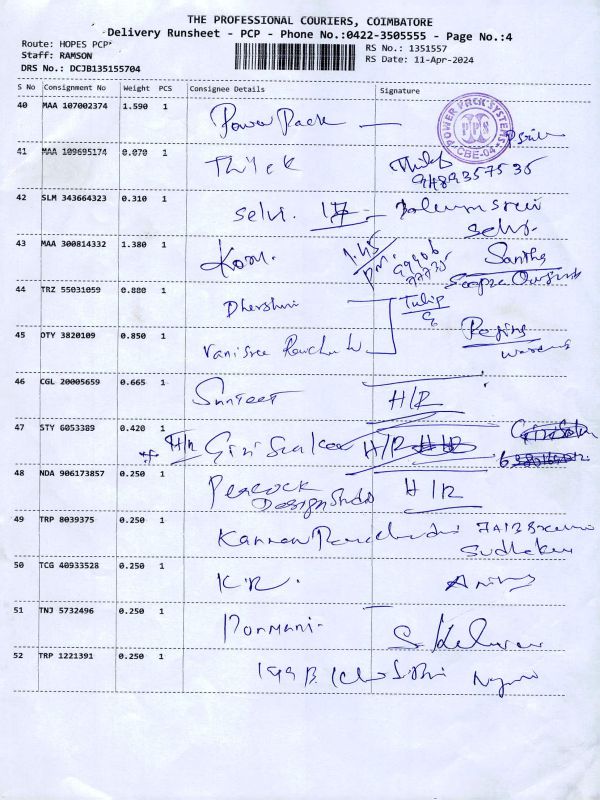 THE PROFESSIONAL COURIERS, COIMBATORE
Delivery Runsheet - PCP - Phone No.:0422-3505555 - Page No.:4
Route: HOPES PCP*
RS No.: 1351557
Staff: RAMSON
RS Date: 11-Apr-2024
DRS No.: DCJB135155704
S No Consignment No Weight PCS Consignee Details Signature
40 MAA 107002374 1.590 1 Power Pack
POWER PACK SYSTEMS PPS CBE-04
41 MAA 109695174 0.070 1 Thilek Thilep
9489357535
42 SLM 343664323 0.310 1 Selvi. 17
Selvi.
43 MAA 300814332 1.380 1 1.45 Santha
P.M.
44 TRZ 55031059 0.880 1 Dharshni Tulip
45 OTY 3820109 0.850 1 Vanisree
46 CGL 20005659 0.665 1 H/R
47 STY 6053389 0.420 1 H/R H/R H/R
48 NDA 906173857 0.250 1 Peacock H/R
Design Studio
49 TRP 8039375 0.250 1 Kannan
Sudhakar
50 TCG 40933528 0.250 1 K.R.
51 TNJ 5732496 0.250 1 Ponmani.
52 TRP 1221391 0.250 1 199 B